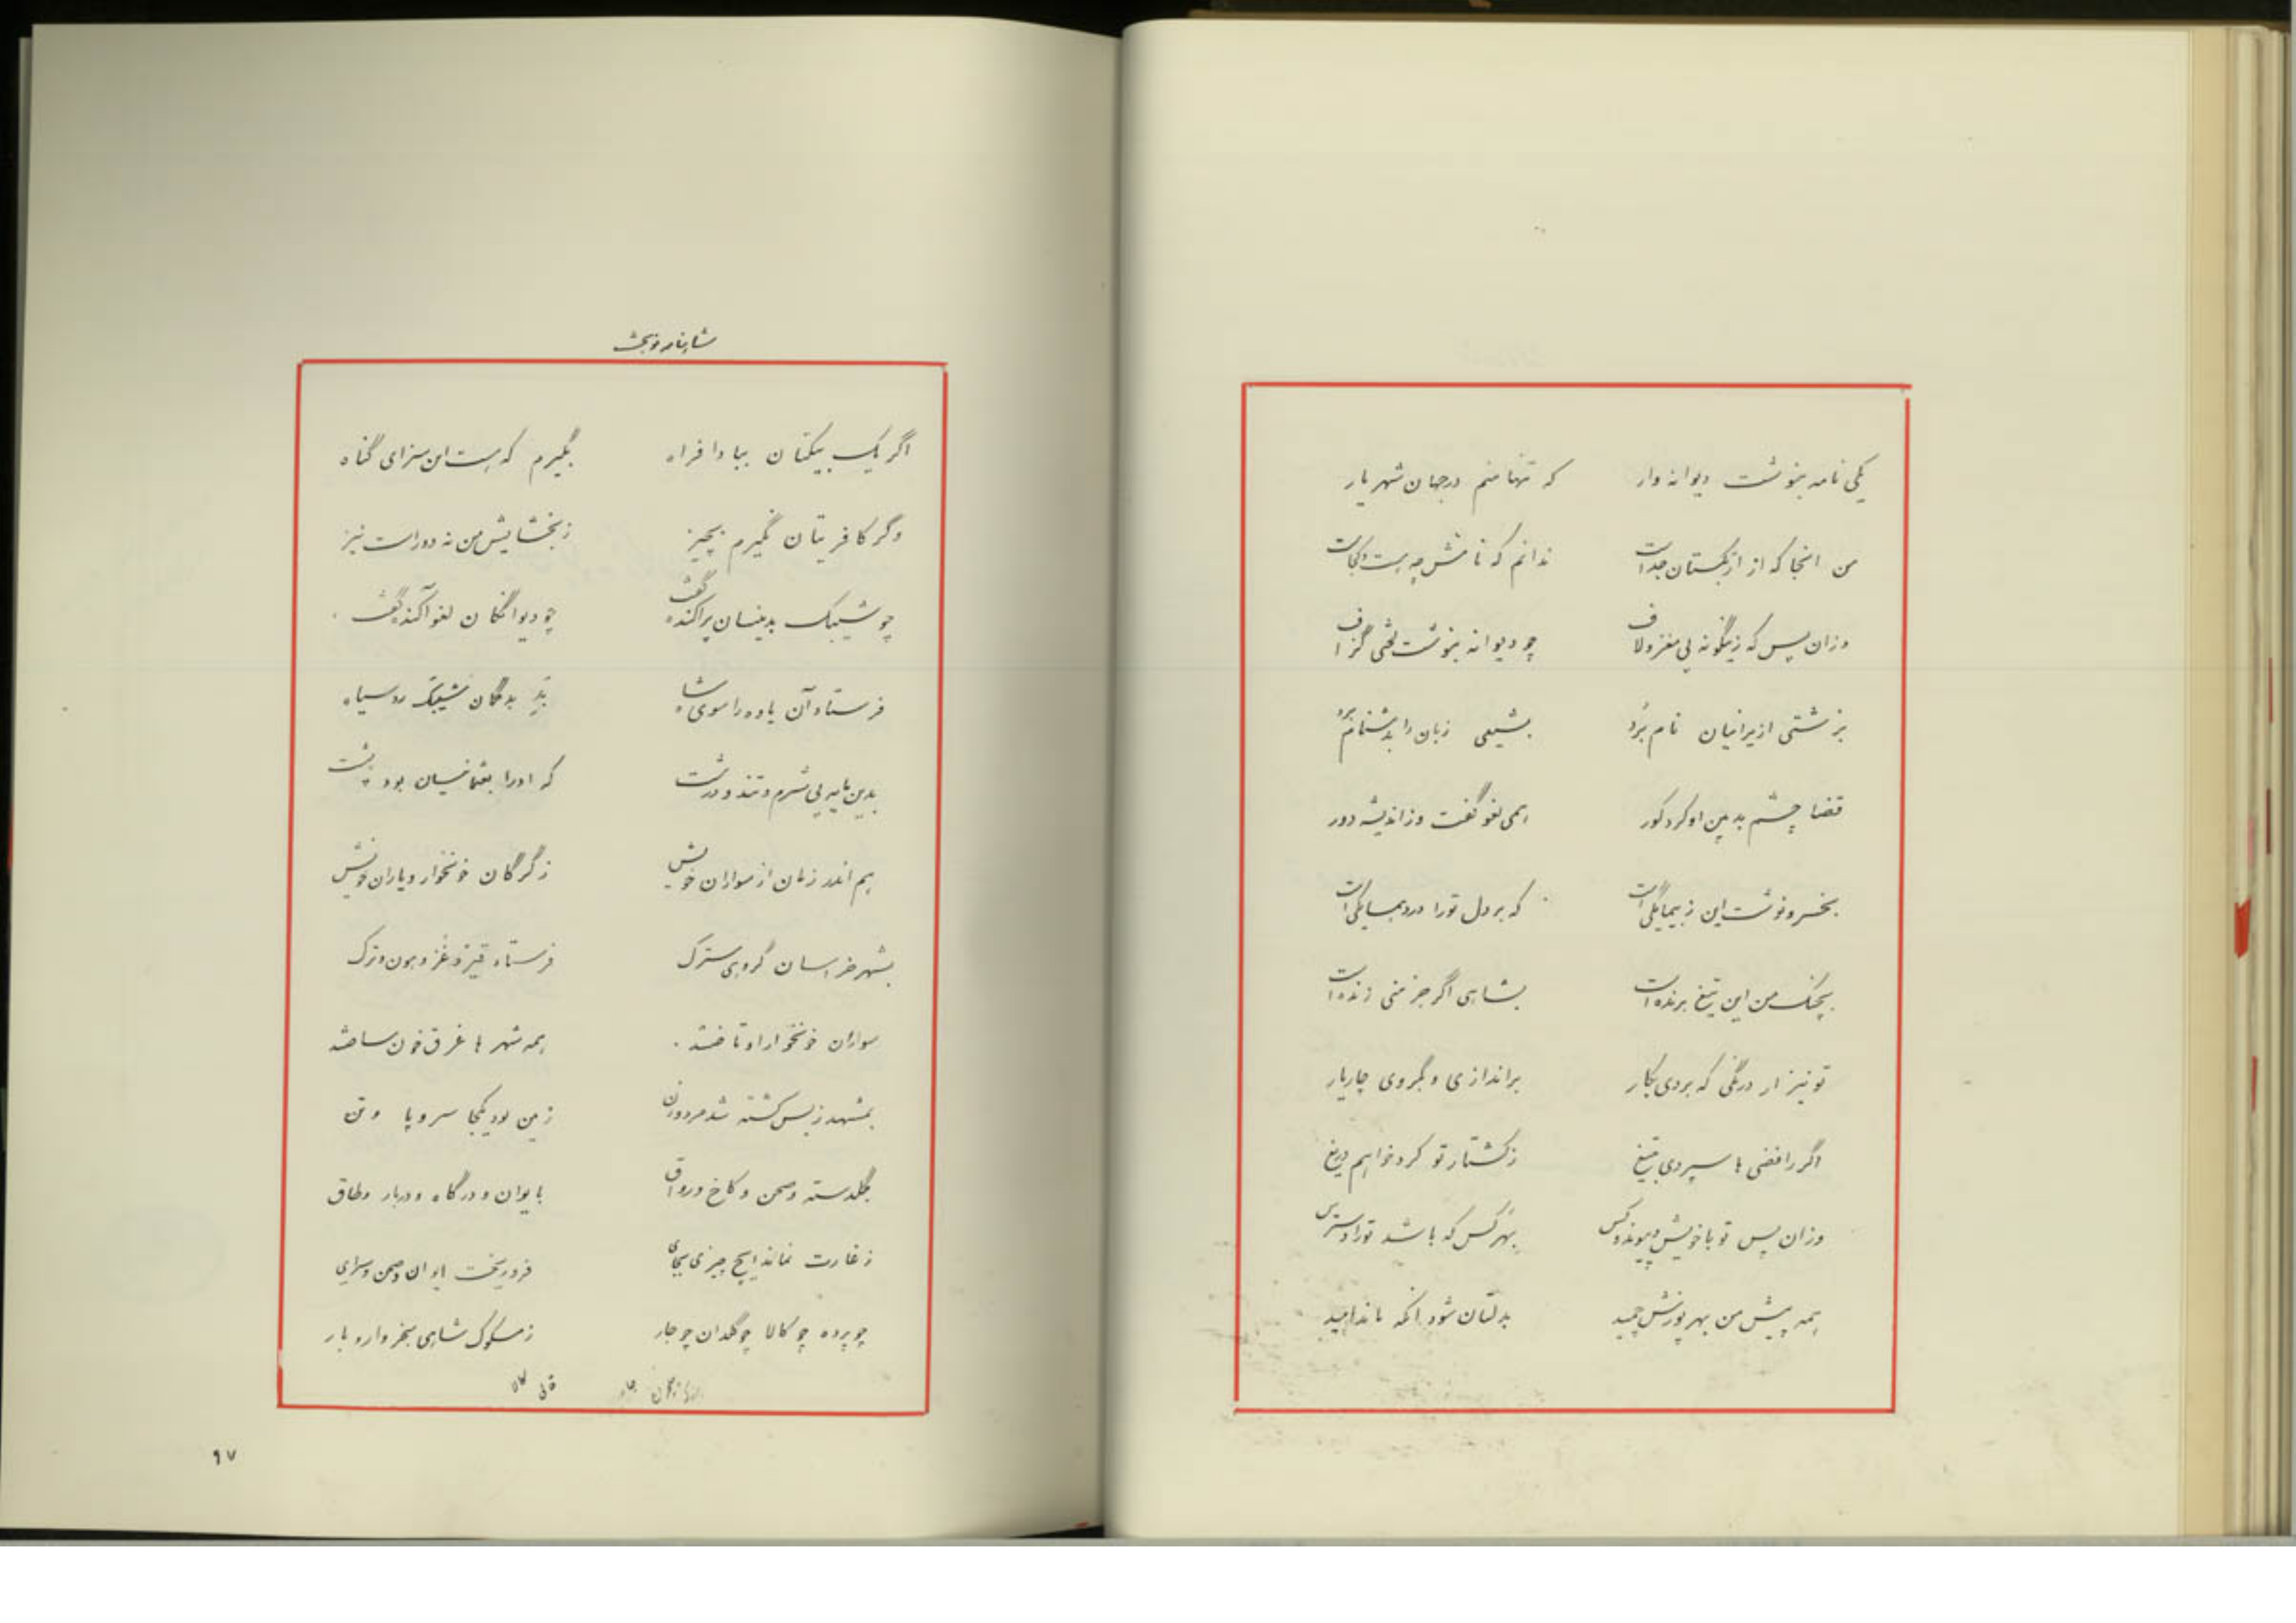 یکی نامه بنوشت دیوانه وار که تنها منم در جهان شهریار
من اینجا که از ازبکستان جداست ندانم که نامش چه هست و کجاست
وزان پس که زینگونه بی مغز و لاف چو دیوانه بنوشت لختی گزاف
بزشتی از یرانیان نام برد بشیعی زبان را بدشنام برد
قضا چشم بدبین او کرد کور همی لغو گفت وز اندیشه دور
بخسرو نوشت این ز بیمایگی است که بر دل تو را درد همسایگی است
بچنگ من این تیغ برنده است بشاهی اگر جز منی زنده است
تو نیز ار درنگی که بردی بکار براندازی و بگروی چاریار
اگر رافضی ها سپردی بتیغ ز کشتار تو کرد خواهم دریغ
وزان پس تو با خویش و پیوند و کس بهر کس که باشد تو را دسترس
همه پیش من بهر پوزش چمید بدلتان شود آنکه ماند امید
شاهنامه نوبخت
اگر یک بیکتان ببادافراه بگیرم که هست این سزای گناه
وگر کافریتان نگیرم بچیز ز بخشایش من نه دور است نیز
چو شیبک بدینسان پراکنده گفت چو دیوانگان لغو آکنده گفت
فرستاد آن یاوه را سوی شاه بد بدگمان شیبک روسیاه
بدین پایه بی شرم و تند و درشت که او را بعثمانیان بود پشت
هم اندر زمان از سواران خویش ز گرگان خونخوار و یاران خویش
بشهر خراسان گروهی سترک فرستاد قیز و غز و هون و ترک
سواران خونخوار او تاختند همه شهرها غرق خون ساختند
بمشهد ز بس کشته شد مرد و زن زمین بود یکجا سر و پا و تن
بگلدسته و صحن و کاخ و رواق بایوان و درگاه و دربار و طاق
ز غارت نماند ایچ چیزی بجای فرو ریخت ایوان و صحن و سرای
چو پرده چو کالا چو گلدان چو جار ز مسکوک شاهی بخروار و بار
۹۷